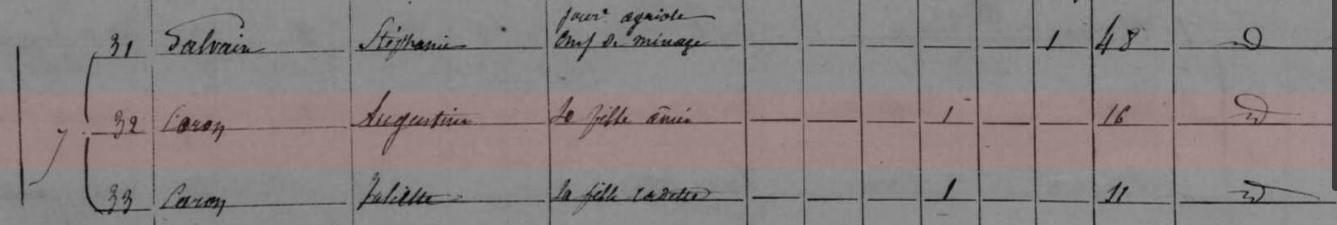 jourre agricole
31 Salvain Stéphanie chef de ménage 1 48
7 32 Caron Augustine Sa fille aînée 1 16
33 Caron Juliette Sa fille cadette 1 11